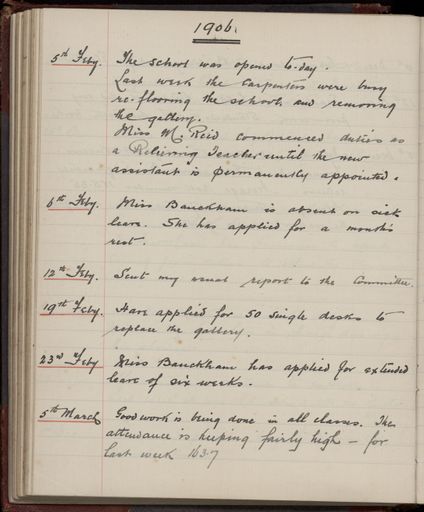 1906.
5th Feby. The school was opened to-day.
Last week the carpenters were busy
re-flooring the school, and removing
the gallery.
Miss M. Reid commenced duties as
a Relieving Teacher until the new
assistant is permanently appointed.
6th Feby. Miss Bauckham is absent on sick
leave. She has applied for a month's
rest.
12th Feby. Sent my usual report to the Committee.
19th Feby. Have applied for 50 single desks to
replace the gallery.
23rd Feby Miss Bauckham has applied for extended
leave of six weeks.
5th March Good work is being done in all classes. The
attendance is keeping fairly high — for
last week 163.7